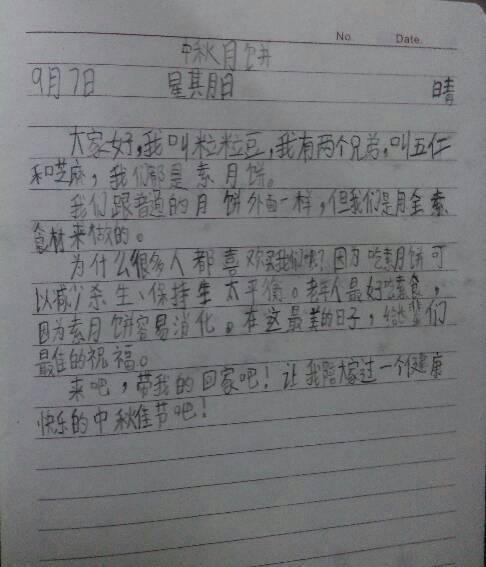 No.    Date.
中秋月饼
9月7日 星其月日 晴
大家好，我叫粒粒豆，我有两个兄弟，叫五仁
和芝麻，我们都是素月饼。
我们跟普通的月饼外面一样，但我们是用全素
食材来做的。
为什么很多人都喜欢买我们呢？因为吃素月饼可
以减少杀生、保持生太平衡。老年人最好吃素食，
因为素月饼容易消化。在这最美的日子，给长辈们
最佳的祝福。
来吧，带我的回家吧！让我陪大家过一个健康
快乐的中秋佳节吧！